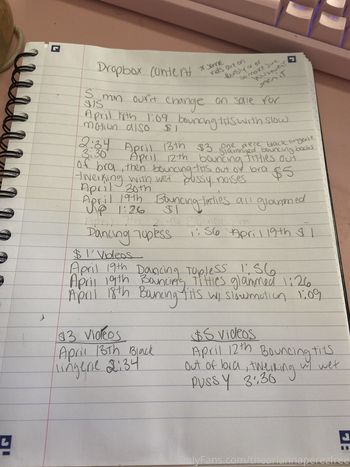 Dropbox content
* some
5 min outfit change on sale for
$15
April 18th 1:09 bouncing tits with slow
motion also $1
2:34 April 13th $3 one piece black lingerie
3:30 April 12th bouncing titties out
of bra, then bouncing tits out of bra $5
twerking with wet pussy noises
April 30th
April 19th Bouncing titties all glammed
up 1:26 $1
Dancing topless 1:56 April 19th $1
$1 Videos
April 19th Dancing topless 1:56
April 19th Bouncing titties glammed 1:26
April 18th Bouncing tits w/ slowmotion 1:09
$3 Videos
April 13th Black
lingerie 2:34
$5 videos
April 12th Bouncing tits
out of bra, twerking w/ wet
pussy 3:30